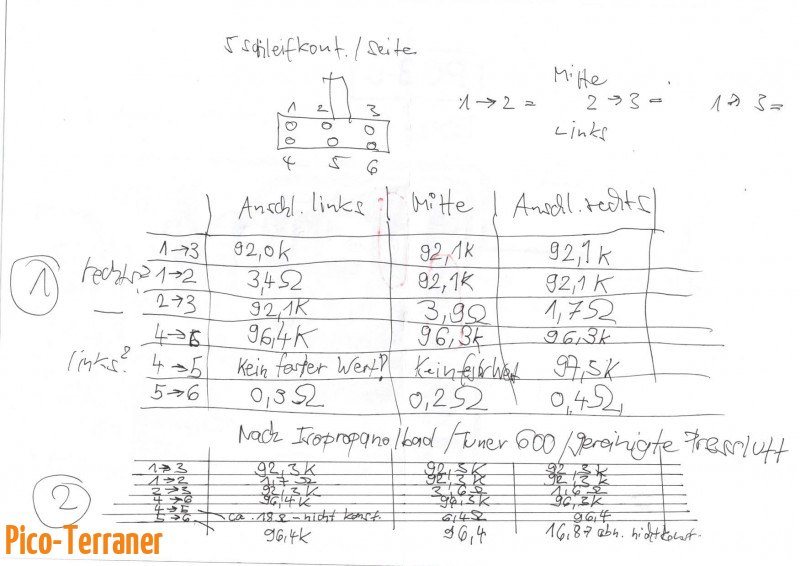 5 Schleifkont./Seite
Mitte
1→2 = 2→3 = 1→3 =
Links
1 2 3
4 5 6
Anschl. links Mitte Anschl. rechts
1 rechts?
1→3 92,0k 92,1k 92,1k
1→2 3,4Ω 92,1k 92,1k
2→3 92,1k 3,9Ω 1,7Ω
4→6 96,4k 96,3k 96,3k
links?
4→5 Kein fester Wert? Kein fester Wert 97,5k
5→6 0,3Ω 0,2Ω 0,4Ω
Nach Isopropanolbad/Tuner 600/gereinigte Pressluft
2
1→3 92,3k 92,3k 92,3k
1→2 1,7Ω 92,3k 92,3k
2→3 92,3k 3,6Ω 1,6Ω
4→6 96,4k 96,3k 96,3k
4→5 ca. 18Ω - nicht konst. 6,4Ω 96,4
5→6 96,4k 96,4 16,87 abn. nicht konst.
Pico-Terraner